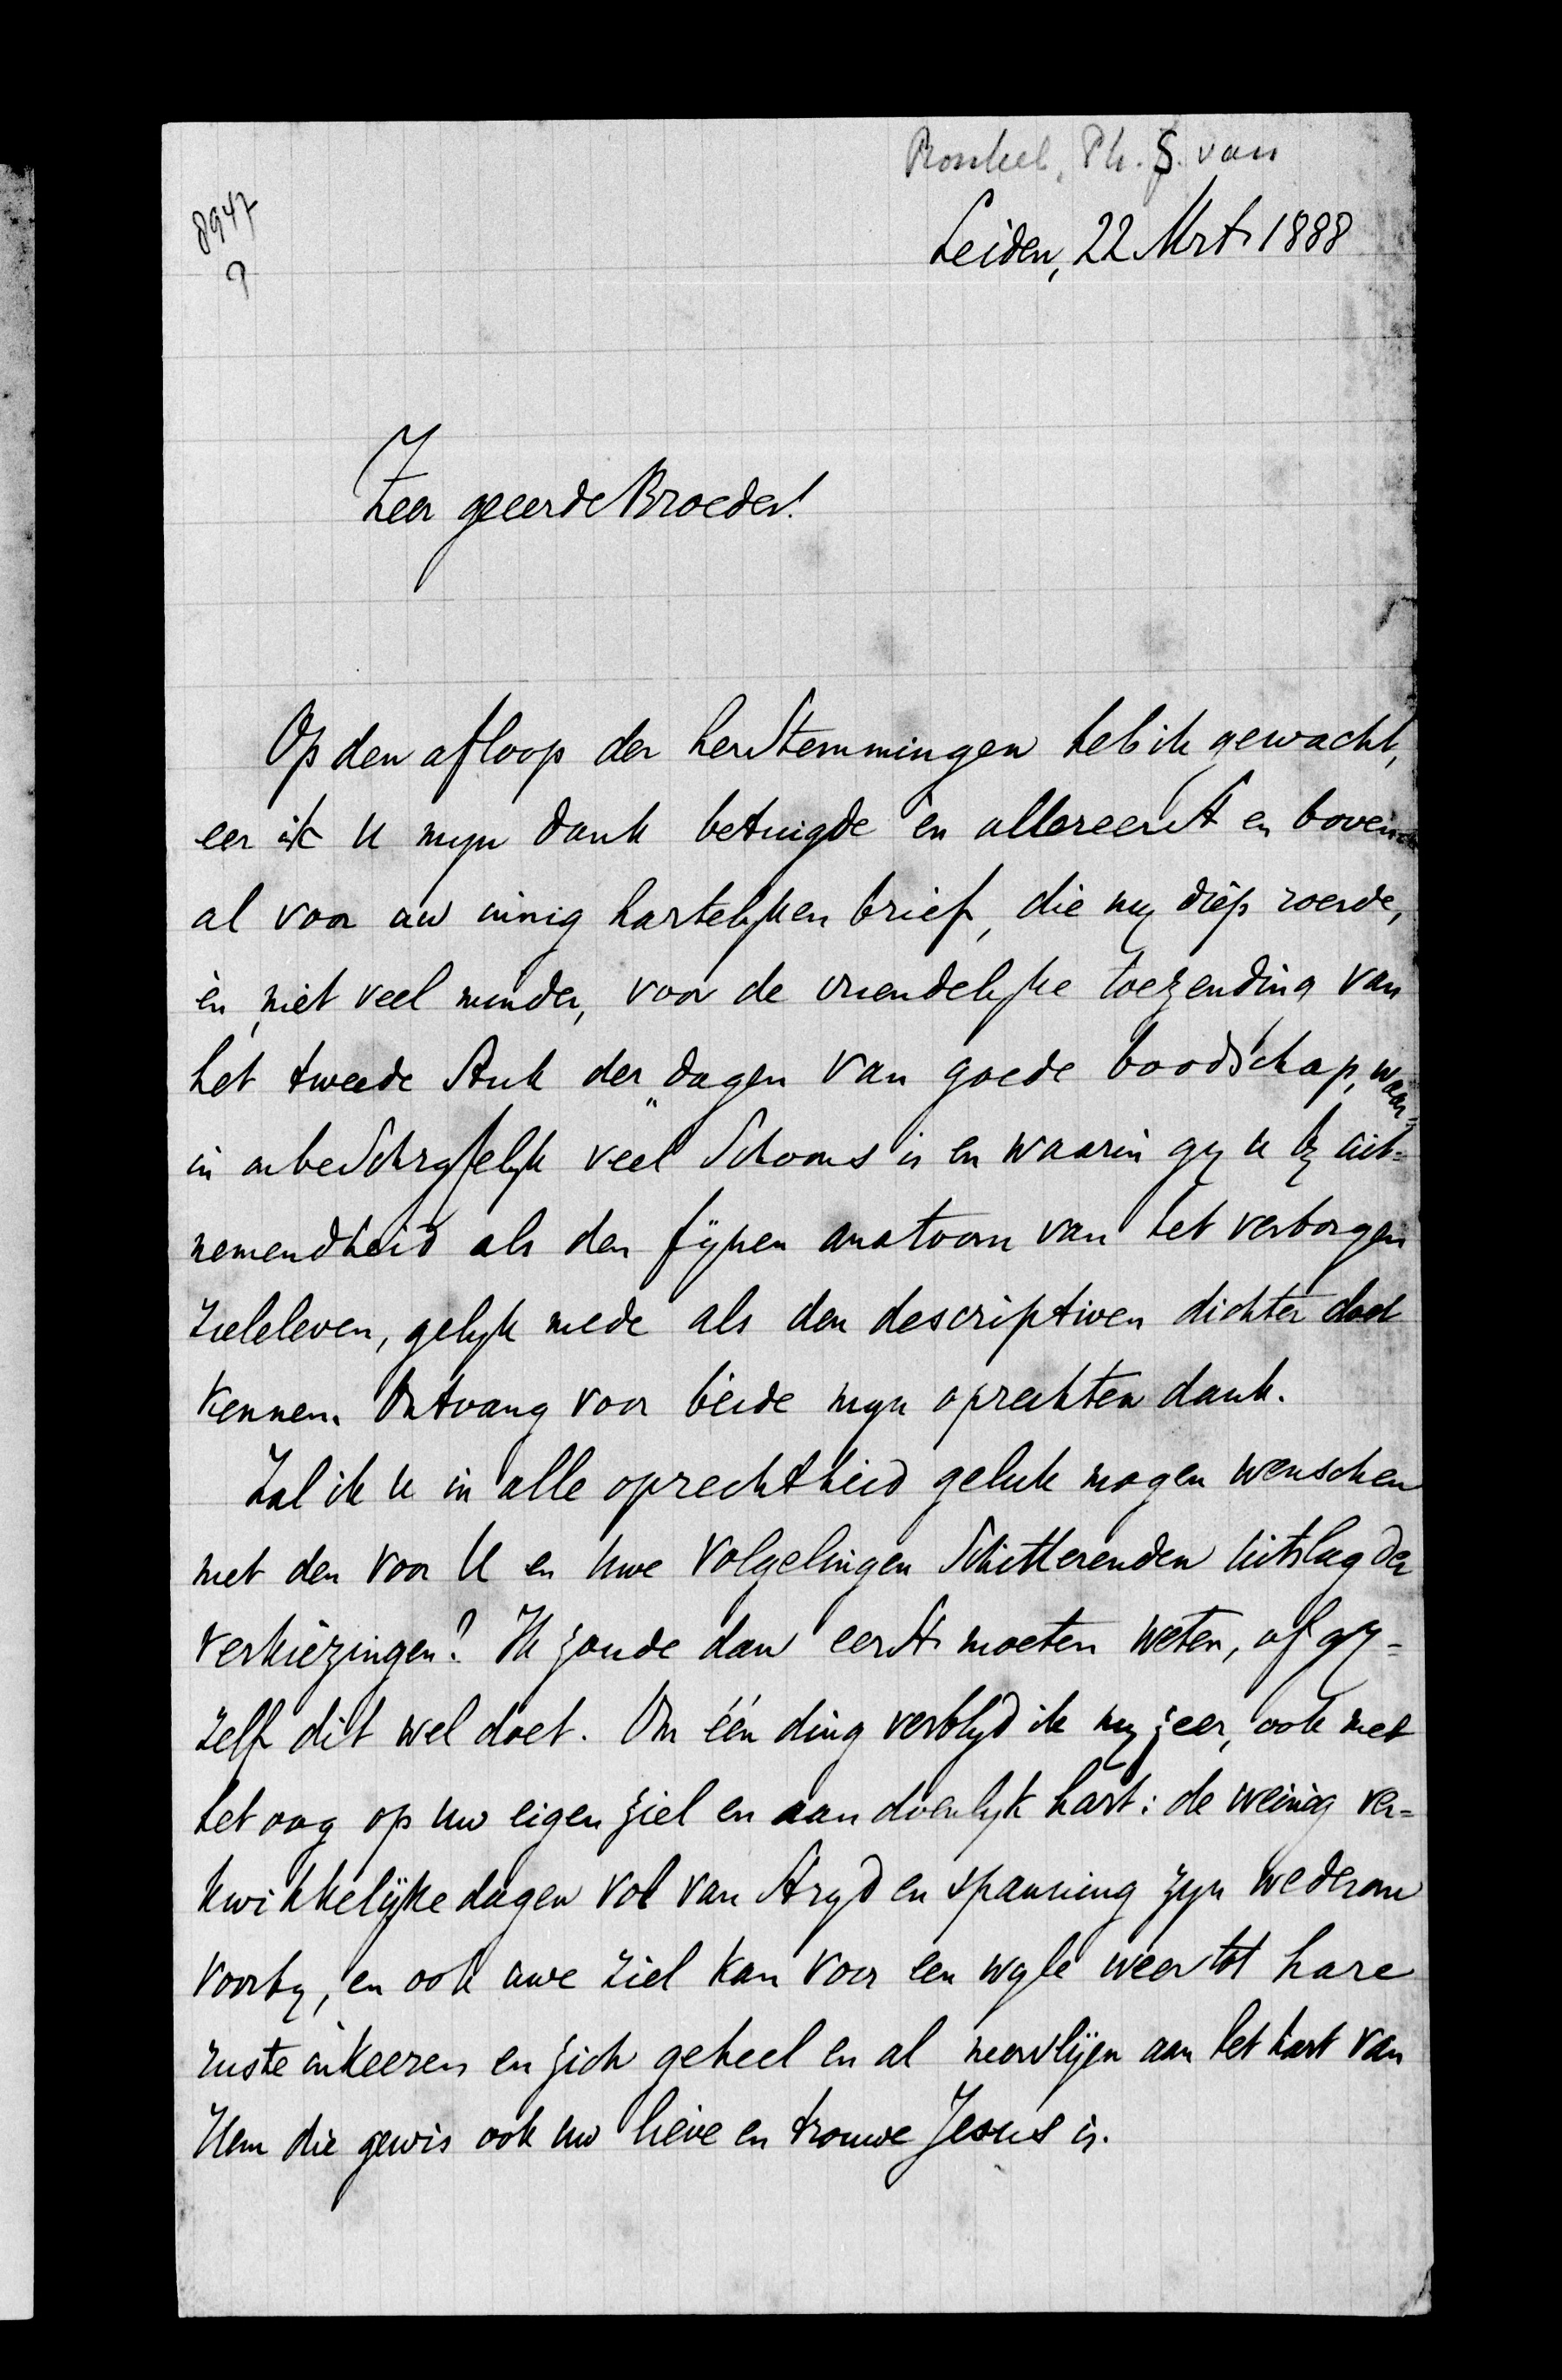 Ronkel, Ph. S. van
8947
?
Leiden, 22 Mrt 1888
Zeer geeerde Broeder!
Op den afloop der herstemmingen heb ik gewacht,
eer ik U mijn dank betuigde èn allereerst en boven
al voor uw innig hartelijken brief, die mij diep roerde,
èn, niet veel minder, voor de vriendelijke toezending van
het tweede stuk der „dagen van goede boodschap", waar=
in onbeschrijfelijk veel schoons is en waarin gij U bij uit=
nemendheid als den fijnen anatoom van het verborgen
zieleleven, gelijk mede als den descriptiven dichter doet
kennen. Ontvang voor beide mijn oprechten dank.
Zal ik U in alle oprechtheid geluk mogen wenschen
met den voor U en uwe volgelingen schitterenden uitslag der
verkiezingen? Ik zoude dan eerst moeten weten, of gij=
zelf dit wel doet. Om één ding verblijd ik mij zeer, ook met
het oog op uw eigen ziel en aandoenlijk hart: de weinig ver=
kwikkelijke dagen vol van strijd en spanning zijn wederom
voorbij, en ook uwe ziel kan voor een wijle weer tot hare
ruste inkeeren en zich geheel en al neervlijen aan het hart van
Hem die gewis ook uw lieve en trouwe Jesus is.